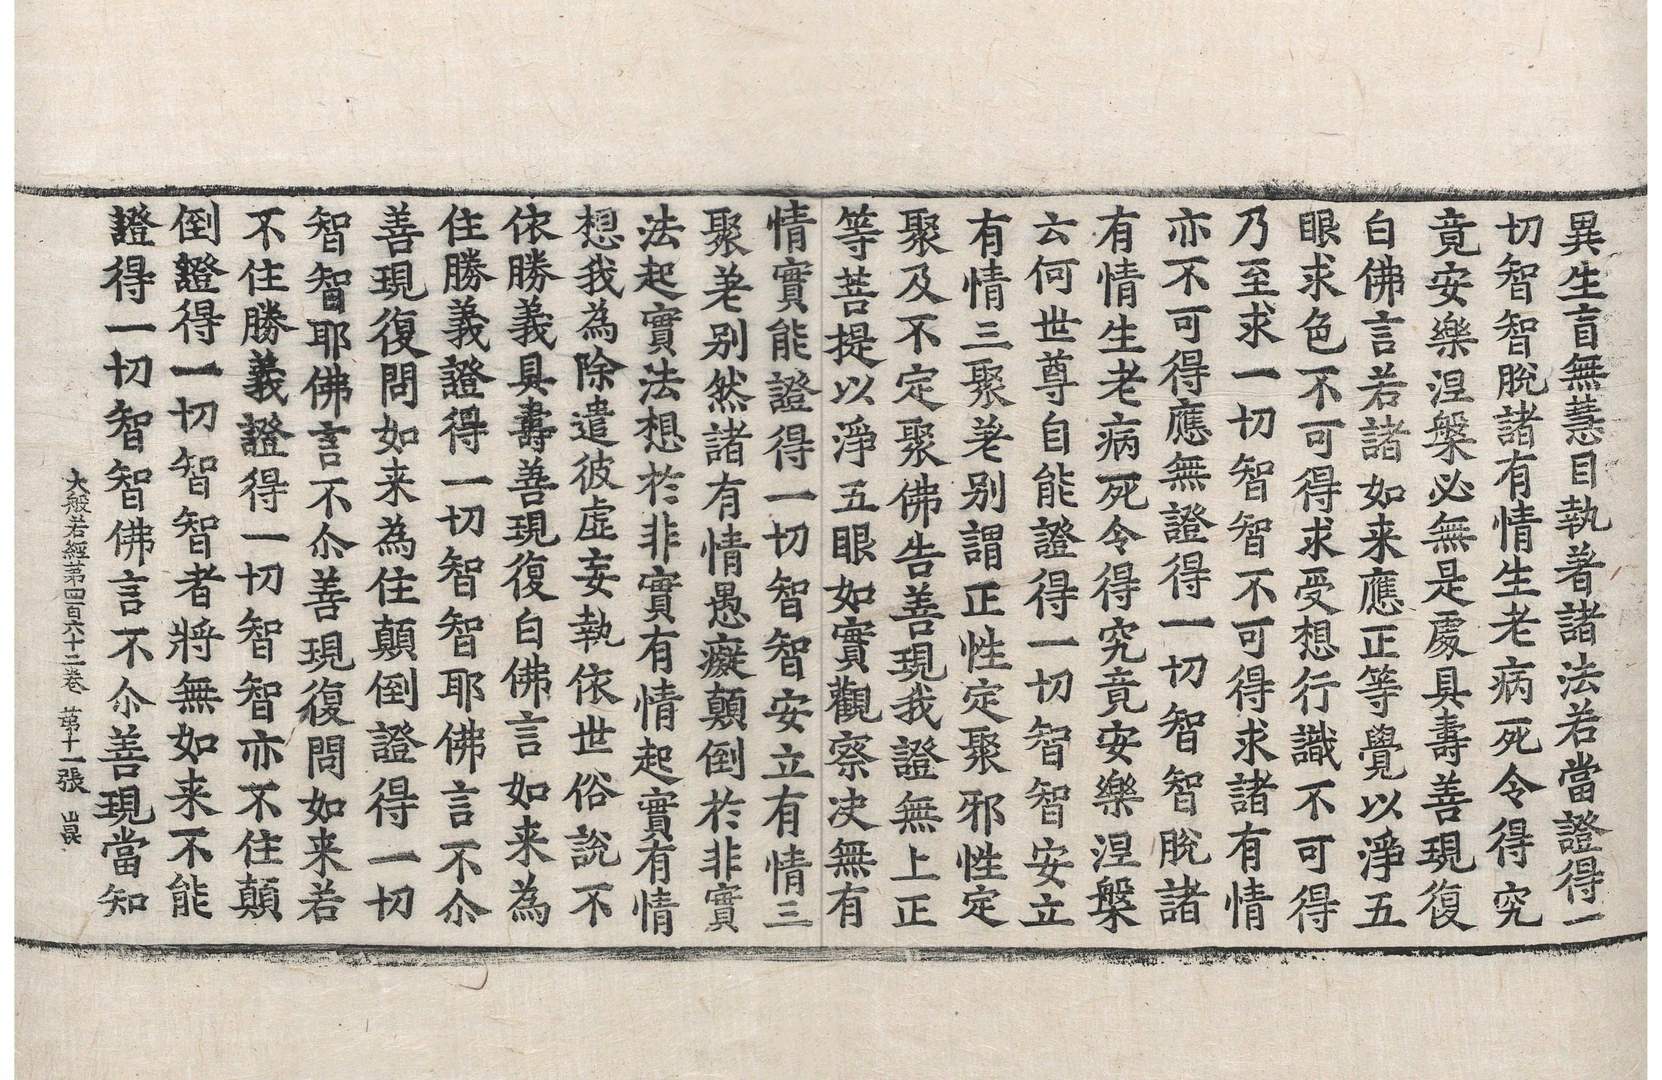 異生盲無慧目執著諸法若當證得一
切智智脫諸有情生老病死令得究
竟安樂涅槃必無是處具壽善現復
白佛言若諸如来應正等覺以淨五
眼求色不可得求受想行識不可得
乃至求一切智智不可得求諸有情
亦不可得應無證得一切智智脫諸
有情生老病死令得究竟安樂涅槃
云何世尊自能證得一切智智安立
有情三聚差别謂正性定聚邪性定
聚及不定聚佛告善現我證無上正
等菩提以淨五眼如實觀察决無有
情實能證得一切智智安立有情三
聚差别然諸有情愚癡顛倒於非實
法起實法想於非實有情起實有情
想我為除遣彼虛妄執依世俗說不
依勝義具壽善現復白佛言如来為
住勝義證得一切智智耶佛言不尒
善現復問如来為住顛倒證得一切
智智耶佛言不尒善現復問如来若
不住勝義證得一切智智亦不住顛
倒證得一切智智者將無如来不能
證得一切智智佛言不尒善現當知
大般若經第四百六十二卷 第十一張